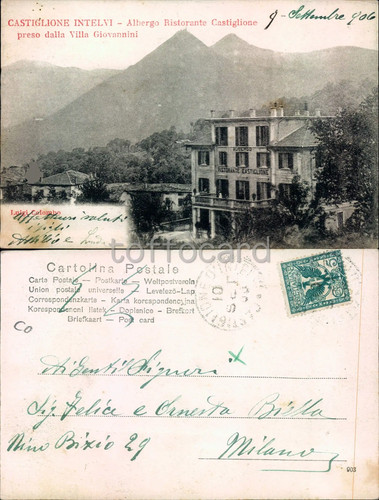 CASTIGLIONE INTELVI – Albergo Ristorante Castiglione
preso dalla Villa Giovannini
9 - Settembre 906
ALBERGO
RISTORANTE CASTIGLIONE
Luigi Colombo
Affettuosi saluti
Attilio e
torrocard
Cartolina Postale
Carte Postale – Postkarte – Weltpostverein
Union postale universelle – Levelező-Lap
Correspondenzkarte – Karta korespondencyjna
Korespondenční lístek – Dopisnice – Brefkort
Briefkaart – Post card
10
SET
Co
Ai Gentil Signori
Sig. Felice e Ernesta Biella
Nino Bixio 29
Milano
903